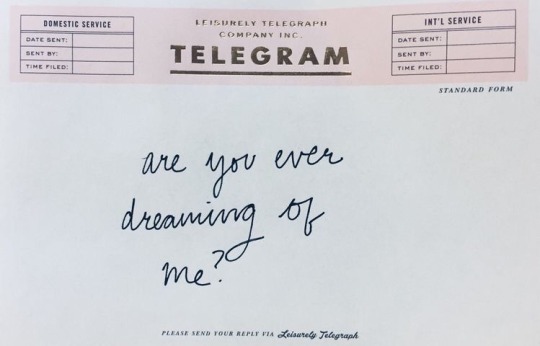 DOMESTIC SERVICE
DATE SENT:
SENT BY:
TIME FILED:
LEISURELY TELEGRAPH
COMPANY INC.
TELEGRAM
INT'L SERVICE
DATE SENT:
SENT BY:
TIME FILED:
STANDARD FORM
are you ever
dreaming of
me?
PLEASE SEND YOUR REPLY VIA Leisurely Telegraph